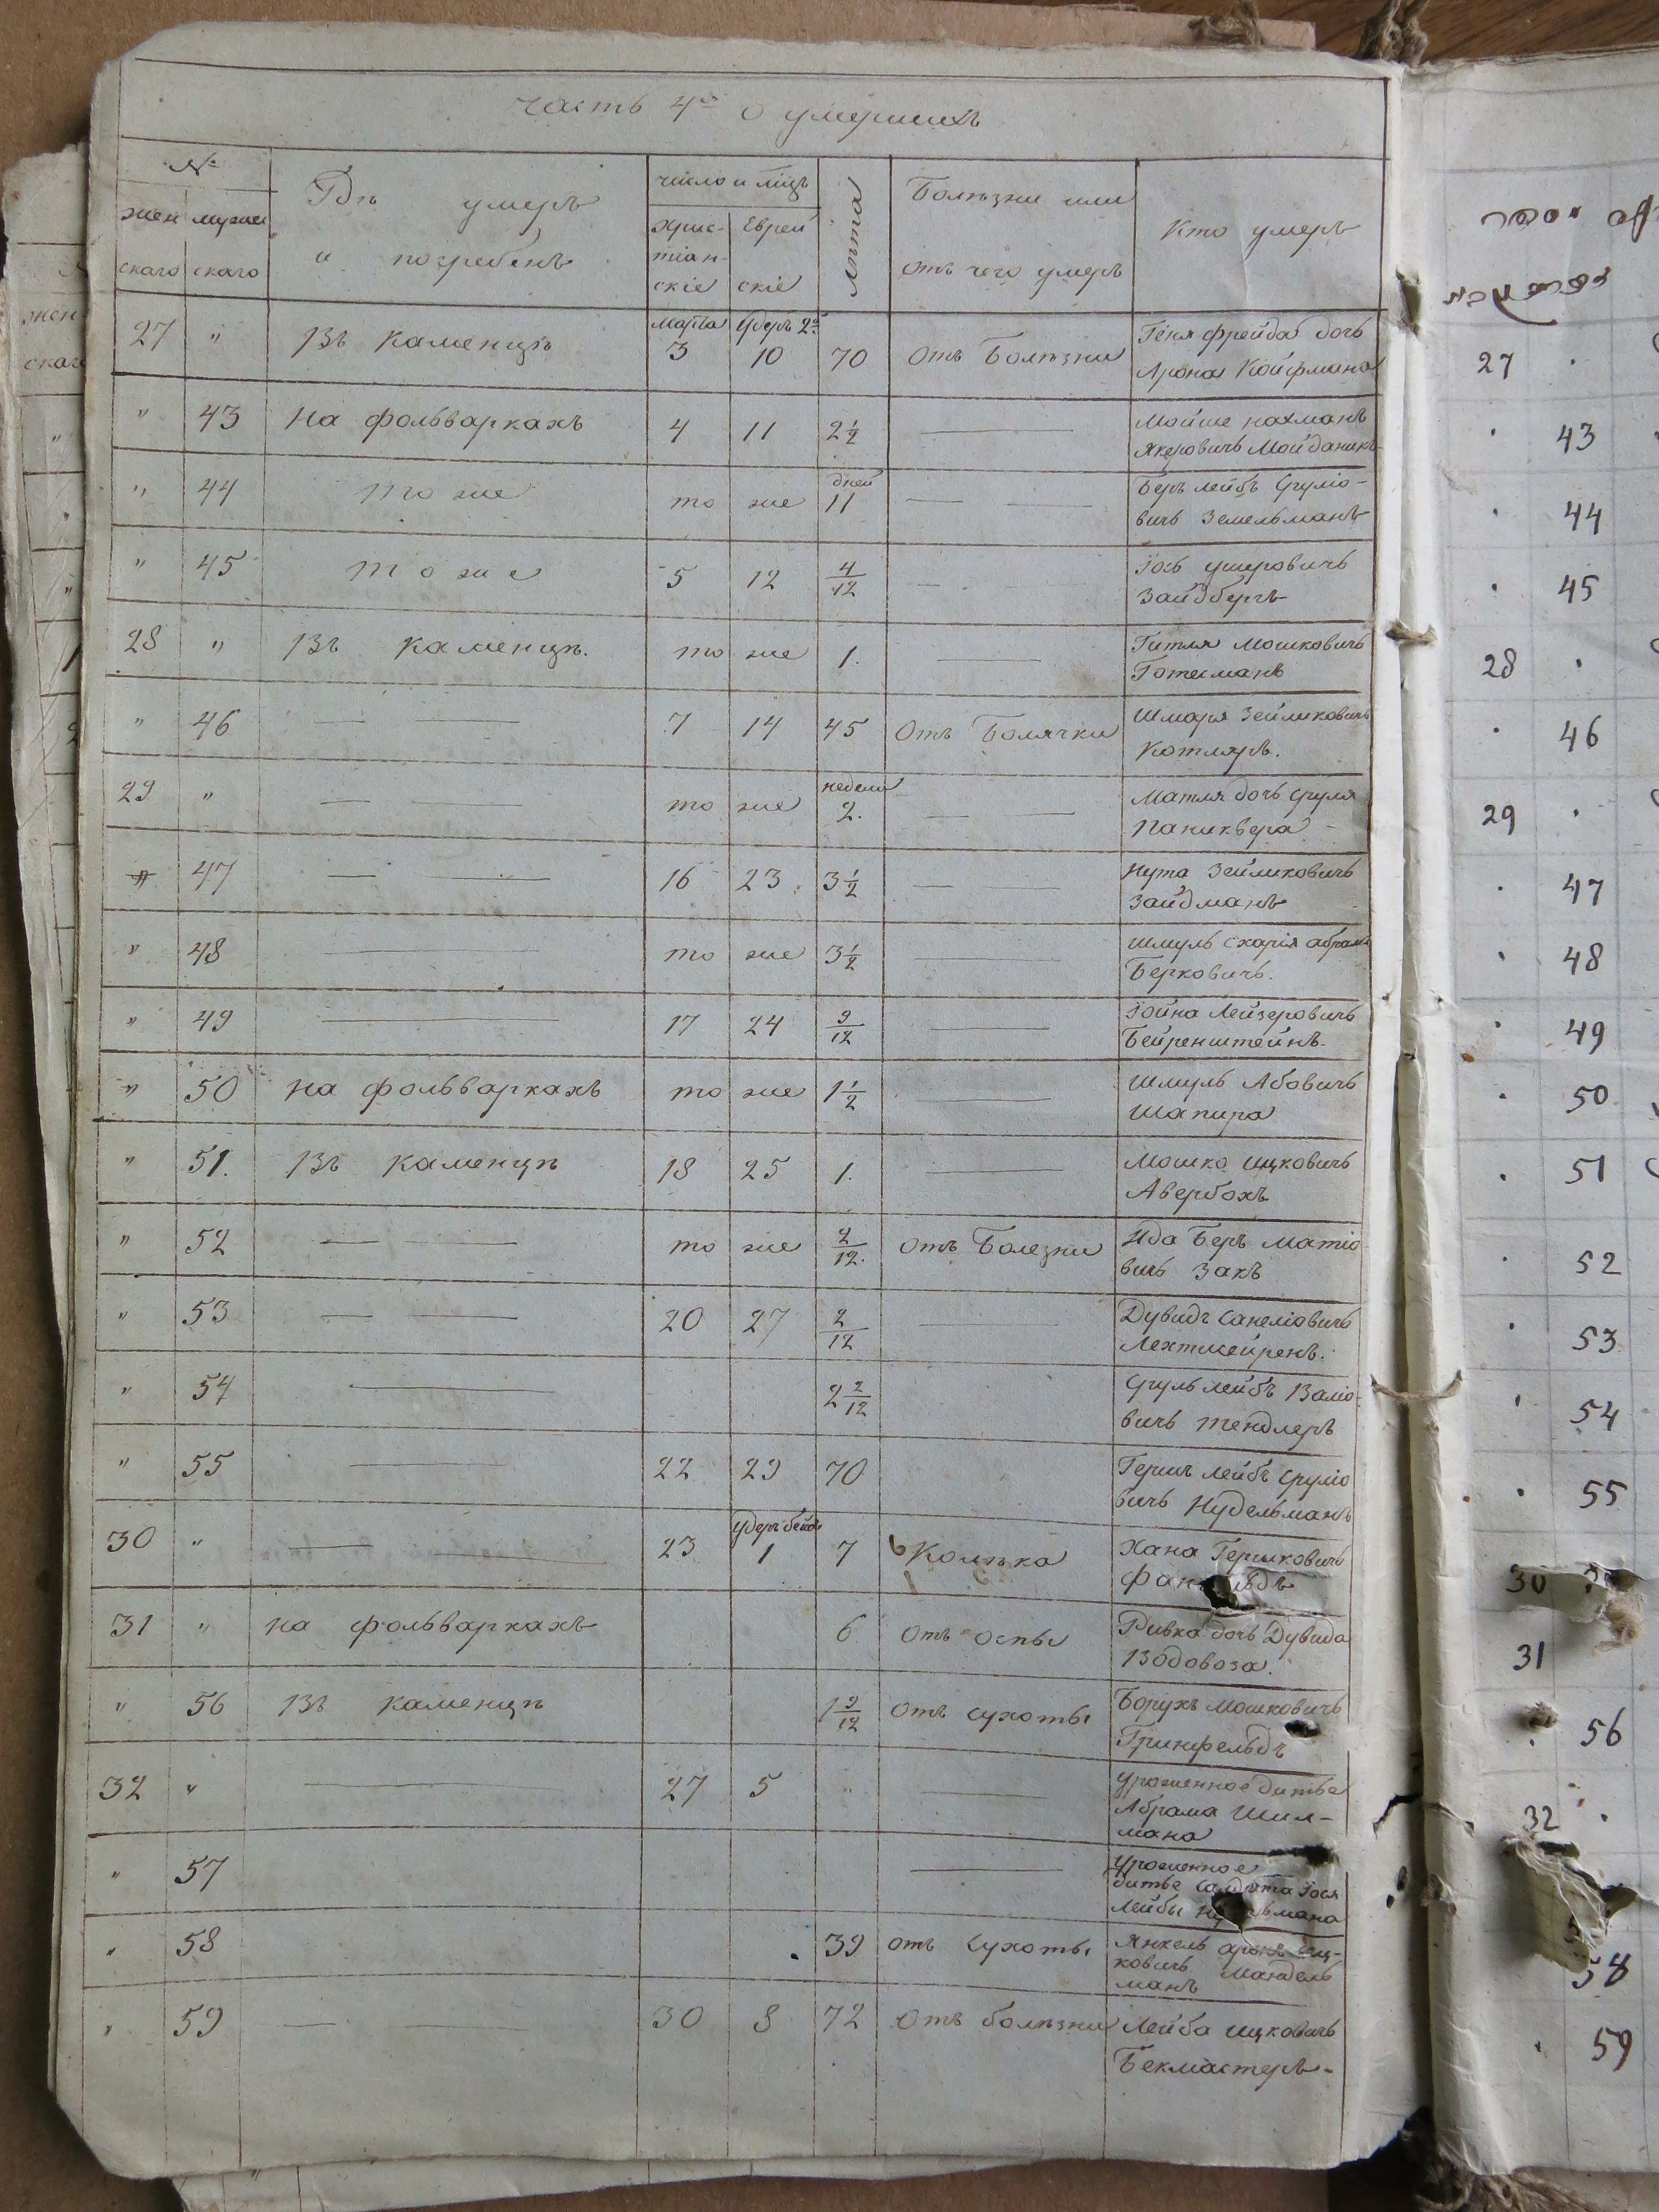 часть 4я о умершихъ
№
жен скаго
мужес скаго
Гдѣ умеръ
и погребенъ
число и мѣцъ
Хрис-
тіан-
скіе
Еврей
скіе
Лѣта
Болѣзни или
отъ чего умеръ
Кто умеръ
марта
27 " Въ Каменцѣ 3 10 70 Отъ Болѣзни Геня фрейда дочь
Арона Койфмана
" 43 На фольваркахъ 4 11 2½ — Мойше нахманъ
Якеровичь Мойданикъ
" 44 то же то же дней 11 — — Беръ лейбъ Сруліо-
вичь Земельманъ
" 45 то же 5 12 4/12 — Іось ушеровичь
Зайдбергъ
28 " Въ Каменцѣ. то же 1. — Гитля Мошковичь
Готесманъ
" 46 — — 7 14 45 Отъ Болячки Шмаря Зейликовичь
Котляръ.
29 " — — то же недели 2. — — Матля дочь Сруля
" 47 — — 16 23. 3½ — — Нута Зейликовичь
Зайдманъ
" 48 — то же 3½ — Шмуль Схарія абрамъ
Берковичь.
" 49 — 17 24 9/12 — Іойна Лейзеровичь
Бейренштейнъ.
" 50 на фольваркахъ то же 1½ — Шмуль Абовичь
Шапира
" 51. Въ Каменцѣ 18 25 1. — Мошко ицковичь
Авербохъ
" 52 — — то же 2/12. отъ Болезни Ида Беръ матіо
вичь Закъ
" 53 — — 20 27 2/12 — Дувидъ Санеліовичь
Лехтмейренъ.
" 54 — 2 2/12 Сруль лейбъ Валіо-
вичь тендлеръ
" 55 — 22 29 70 Гершъ лейбъ Сруліо
вичь Нудельманъ
30 " — — 23 1 7 Колька Хана Гершковичь
31 " на фольваркахъ 6 отъ оспы Ривка дочь Дувида
Водовоза.
" 56 Въ Каменцѣ 1 9/12 отъ сухоты Борухъ мошковичь
Гринфельдъ
32 " — 27 5 " — дитье
Абрама Шил-
мана
" 57 —
дитье Іося
Лейбы
" 58 39 отъ Сухоты Янкель
ковичь Мандель
манъ
" 59 — — 30 8 72 Отъ болѣзни Лейба ицковичь
Бекмастеръ-
27 ·
· 43
· 44
· 45
28 ·
· 46
29 ·
· 47
· 48
· 49
· 50
· 51
· 52
· 53
· 54
· 55
30
31
· 56
32 ·
58
· 59